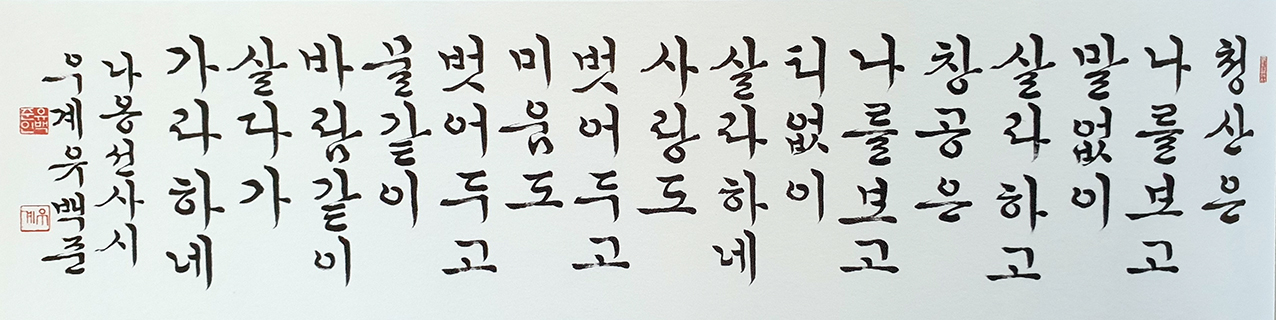 청산은
나를보고
말없이
살라하고
창공은
나를보고
티없이
살라하네
사랑도
벗어두고
미움도
벗어두고
물같이
바람같이
살다가
가라하네
나옹선사시
우계유백준
유백준인
우계